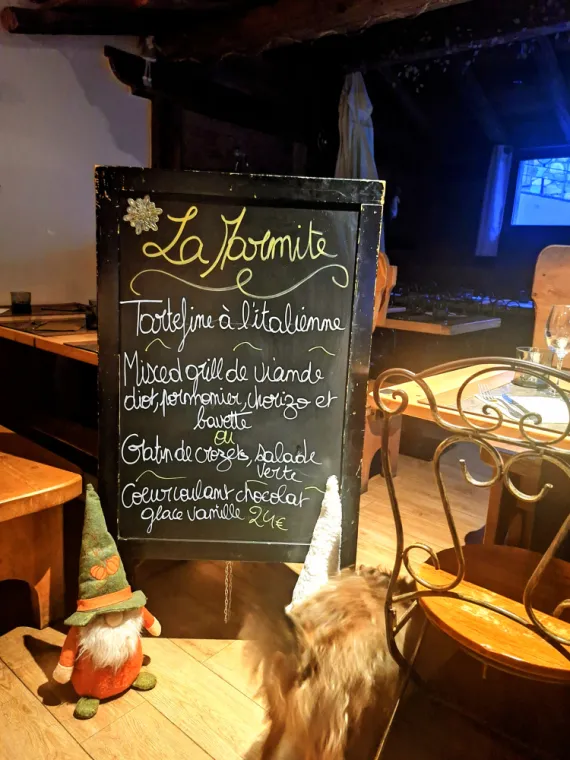 La Marmite
Tartefine à l'italienne
Mixed grill de viande
diot, pormonier, chorizo et
bavette
ou
Gratin de crozets, salade
verte
Coeur coulant chocolat
glace vanille 24€